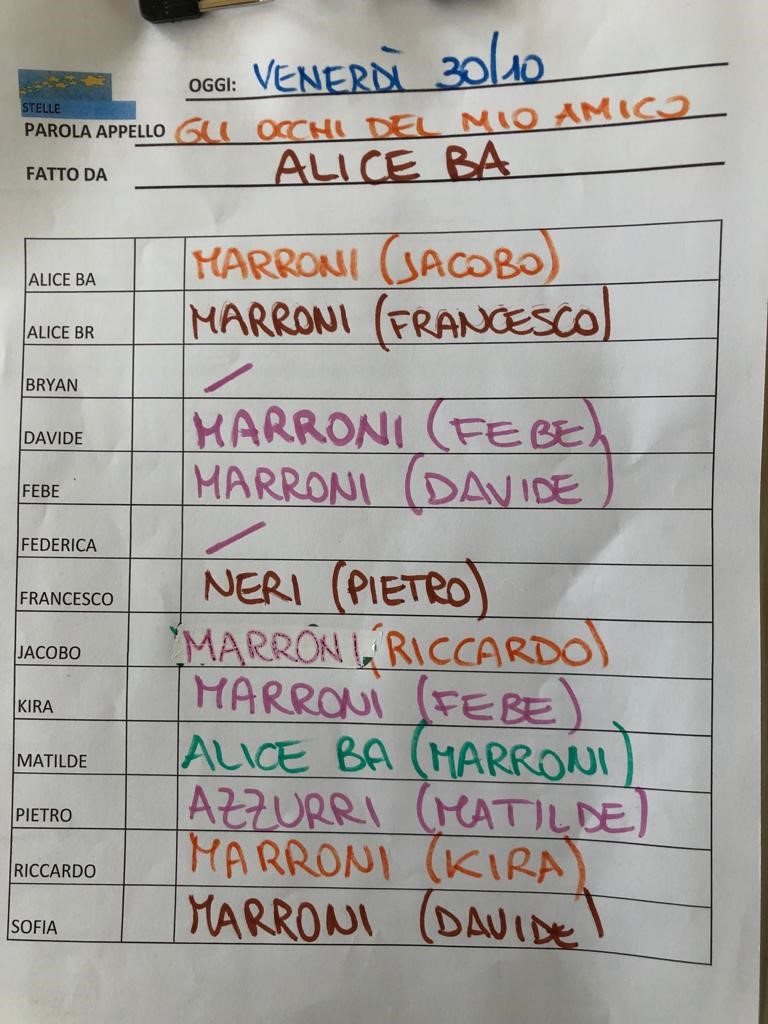 OGGI: VENERDÌ 30/10
STELLE
PAROLA APPELLO GLI OCCHI DEL MIO AMICO
FATTO DA ALICE BA
ALICE BA MARRONI (JACOBO)
ALICE BR MARRONI (FRANCESCO)
BRYAN /
DAVIDE MARRONI (FEBE)
FEBE MARRONI (DAVIDE)
FEDERICA /
FRANCESCO NERI (PIETRO)
JACOBO MARRONI (RICCARDO)
KIRA MARRONI (FEBE)
MATILDE ALICE BA (MARRONI)
PIETRO AZZURRI (MATILDE)
RICCARDO MARRONI (KIRA)
SOFIA MARRONI (DAVIDE)